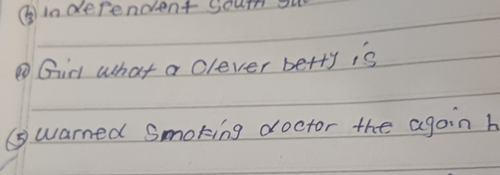 independent South
Girl what a clever betty is
(5) warned smoking doctor the again h